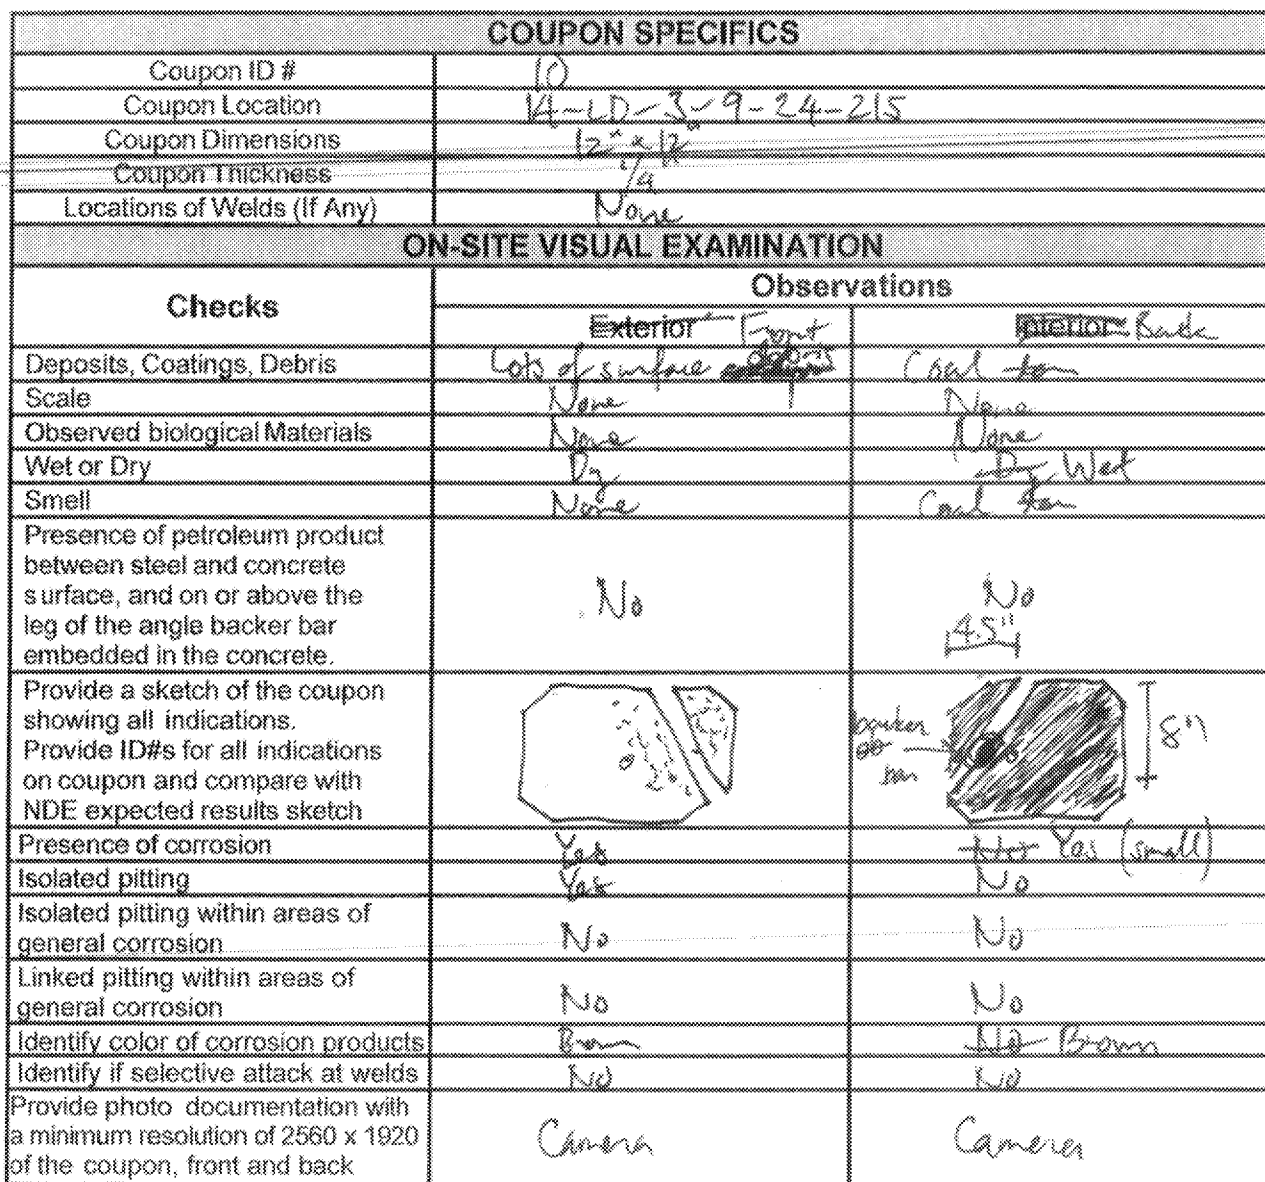 COUPON SPECIFICS
Coupon ID # 10
Coupon Location 14-LD-3-9-24-215
Coupon Dimensions 12" x 12"
Coupon Thickness 1/4
Locations of Welds (If Any) None
ON-SITE VISUAL EXAMINATION
Checks Observations
Exterior Front Interior Back
Deposits, Coatings, Debris Lots of surface Coal tar
Scale None None
Observed biological Materials None None
Wet or Dry Dry Wet
Smell None Coal tar
Presence of petroleum product
between steel and concrete
surface, and on or above the
leg of the angle backer bar
embedded in the concrete.
No No
4.5"
Provide a sketch of the coupon
showing all indications.
Provide ID#s for all indications
on coupon and compare with
NDE expected results sketch
8"
Presence of corrosion Yes No Yes (small)
Isolated pitting Yes No
Isolated pitting within areas of
general corrosion No No
Linked pitting within areas of
general corrosion No No
Identify color of corrosion products Brown No Brown
Identify if selective attack at welds No No
Provide photo documentation with
a minimum resolution of 2560 x 1920
of the coupon, front and back
Camera Camera